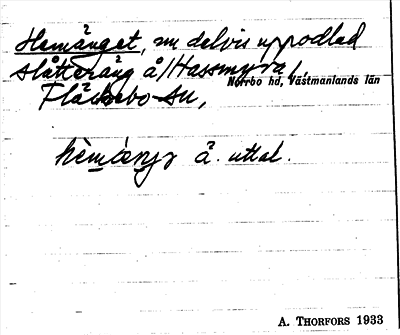 Hemänget, nu delvis uppodlad
slåtteräng å /Hassmyra/,
Norrbo hd, Västmanlands län
Fläckebo sn,
å. uttal.
A. THORFORS 1933